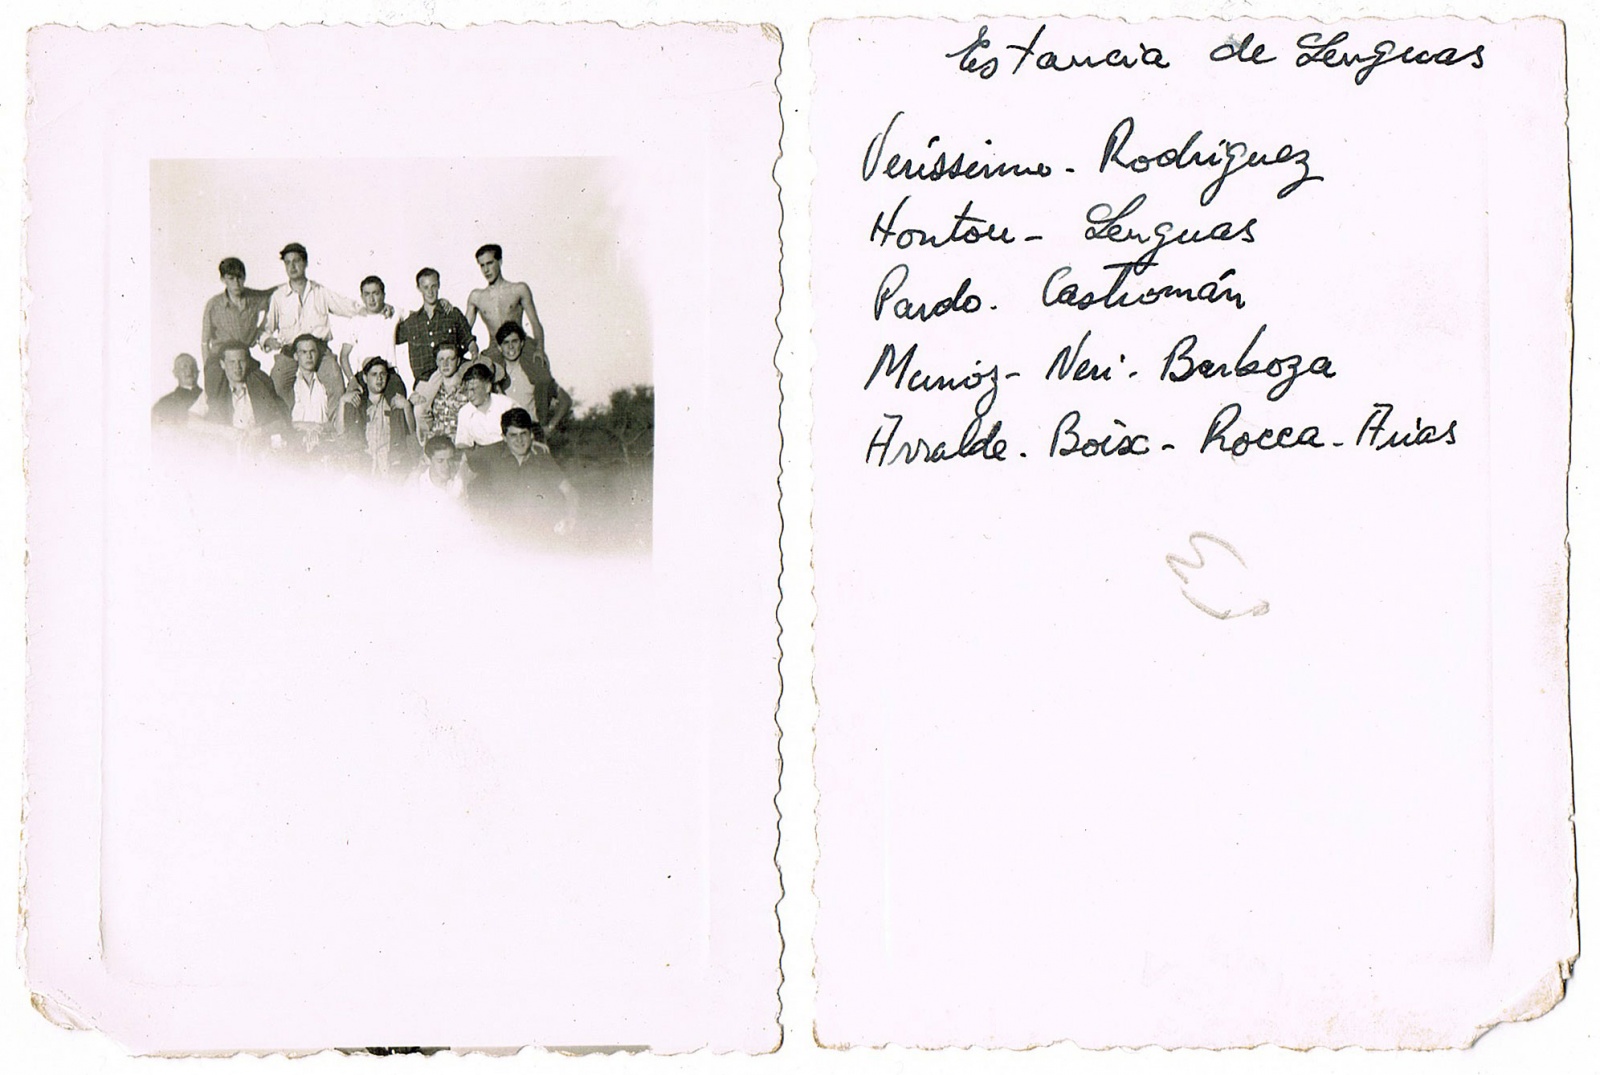 Estancia de Lenguas
Veríssimo - Rodriguez
Hontou - Lenguas
Pardo. Castromán
Munóz - Neri - Barboza
Arralde. Boix - Rocca - Arias